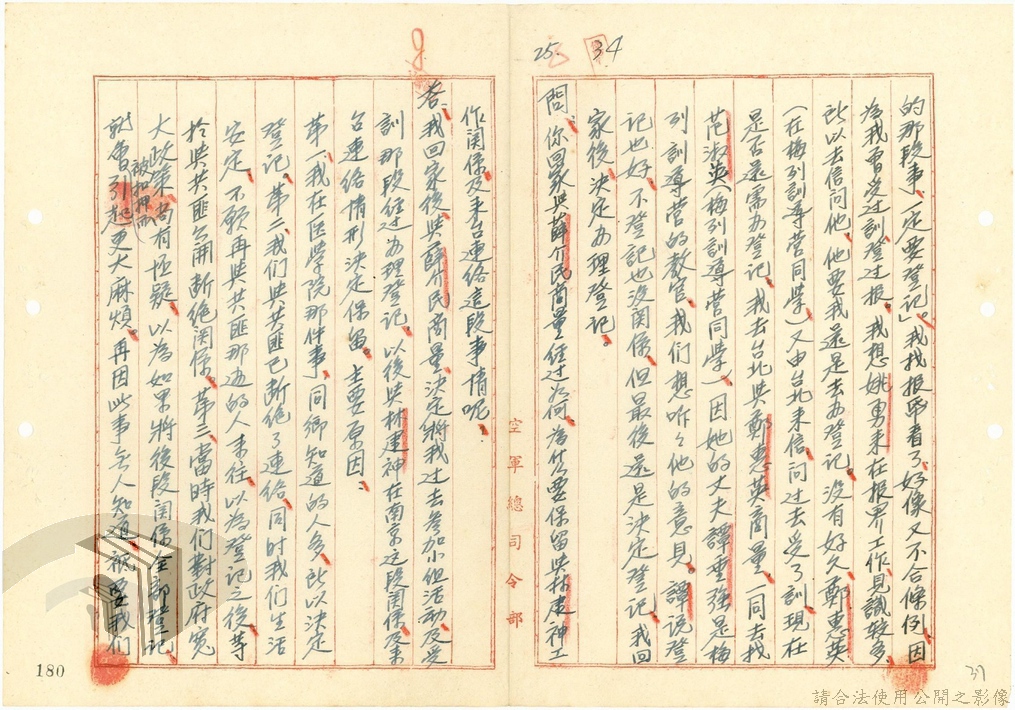 25
34
的那段事、一定要登記」。我找报帋看了、好像又不合條例、因
為我曾受过訓、登过报。我想姚勇来在报界工作、見識較多、
所以去信問他、他要我还是去办登記。没有好久鄭惠英
(在梅列訓导营同学)又由台北来信、问过去受了訓、現在
是否还需办登記、我去台北與鄭惠英商量、一同去找
范淑英(梅列訓導营同学)、因她的丈夫譚重強是梅
列訓導营的教官、我们想听々他的意見。譚说登
記也好、不登記也没関係、但最後还是决定登記、我回
家後、决定办理登記。
問、你回家與薛介民商量经过如何、為什么要保留與林建神工
作関係及来台連络這段事情呢、
答、我回家後與薛介民商量、决定將我过去参加小组活动及受
訓那段经过办理登記。以後與林建神在南京这段関係、及来
台連络情形决定保留。主要原因、
第一、我在医学院那件事、同鄉知道的人多、所以决定
登記。第二、我们與共匪已断绝了連络、同时我们生活
安定、不願再與共匪那边的人来往、以為登記之後、等
於與共匪公開断绝関係。第三、當時我们對政府寬
大政策、尚有怀疑、以為如果將後段関係全部登記、
就會被扣押而引起更大麻煩。再因此事無人知道、衹要我们
空軍總司令部
180
37
請合法使用公開之影像